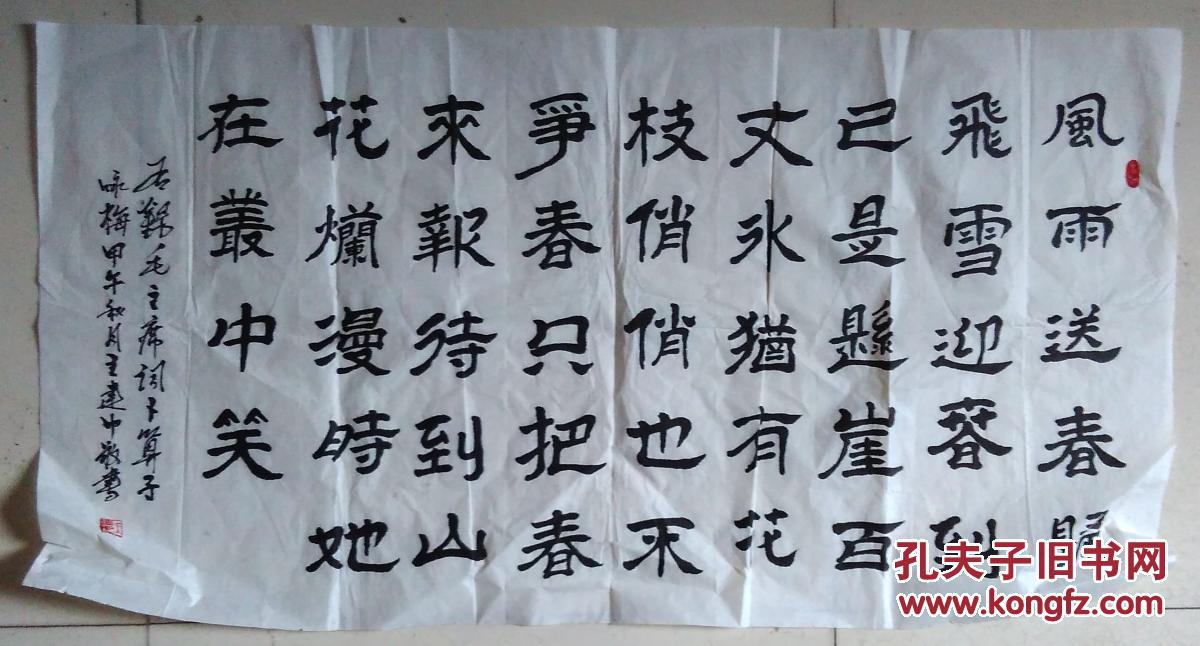 風雨送春歸
飛雪迎春到
已是懸崖百
丈氷猶有花
枝俏俏也不
爭春只把春
來報待到山
花爛漫時她
在叢中笑
右録毛主席词卜算子
咏梅甲午秋月王建中敬書
孔夫子旧书网
www.kongfz.com